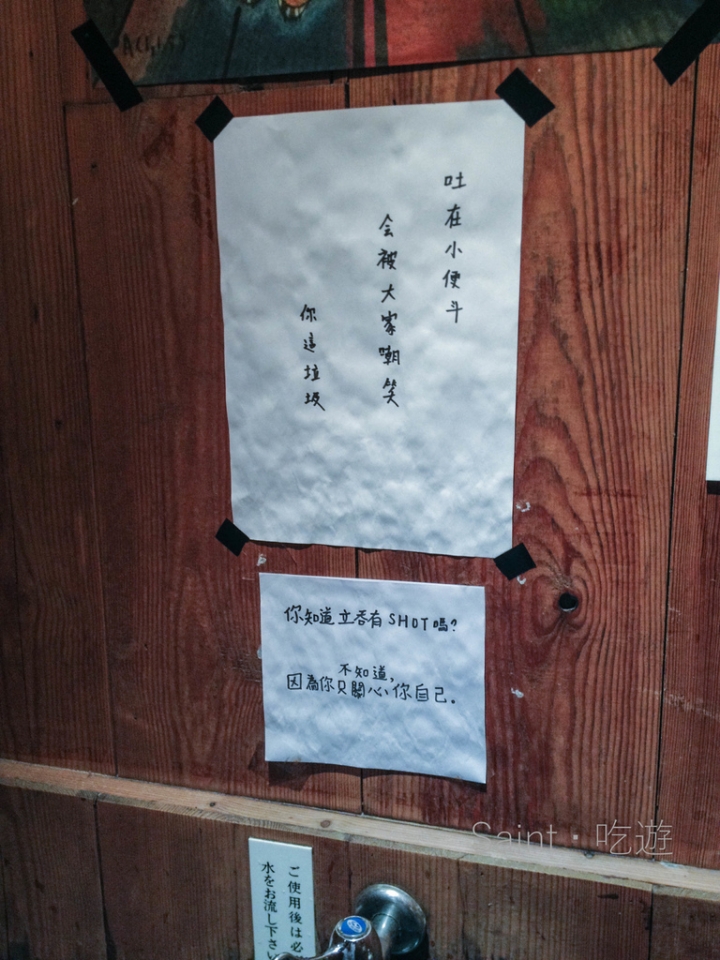 吐在小便斗
会被大家嘲笑
你這垃圾
你知道立吞有SHOT嗎?
不知道,
因為你只關心你自己.
ご使用後は必
水をお流し下さい
Saint・吃遊